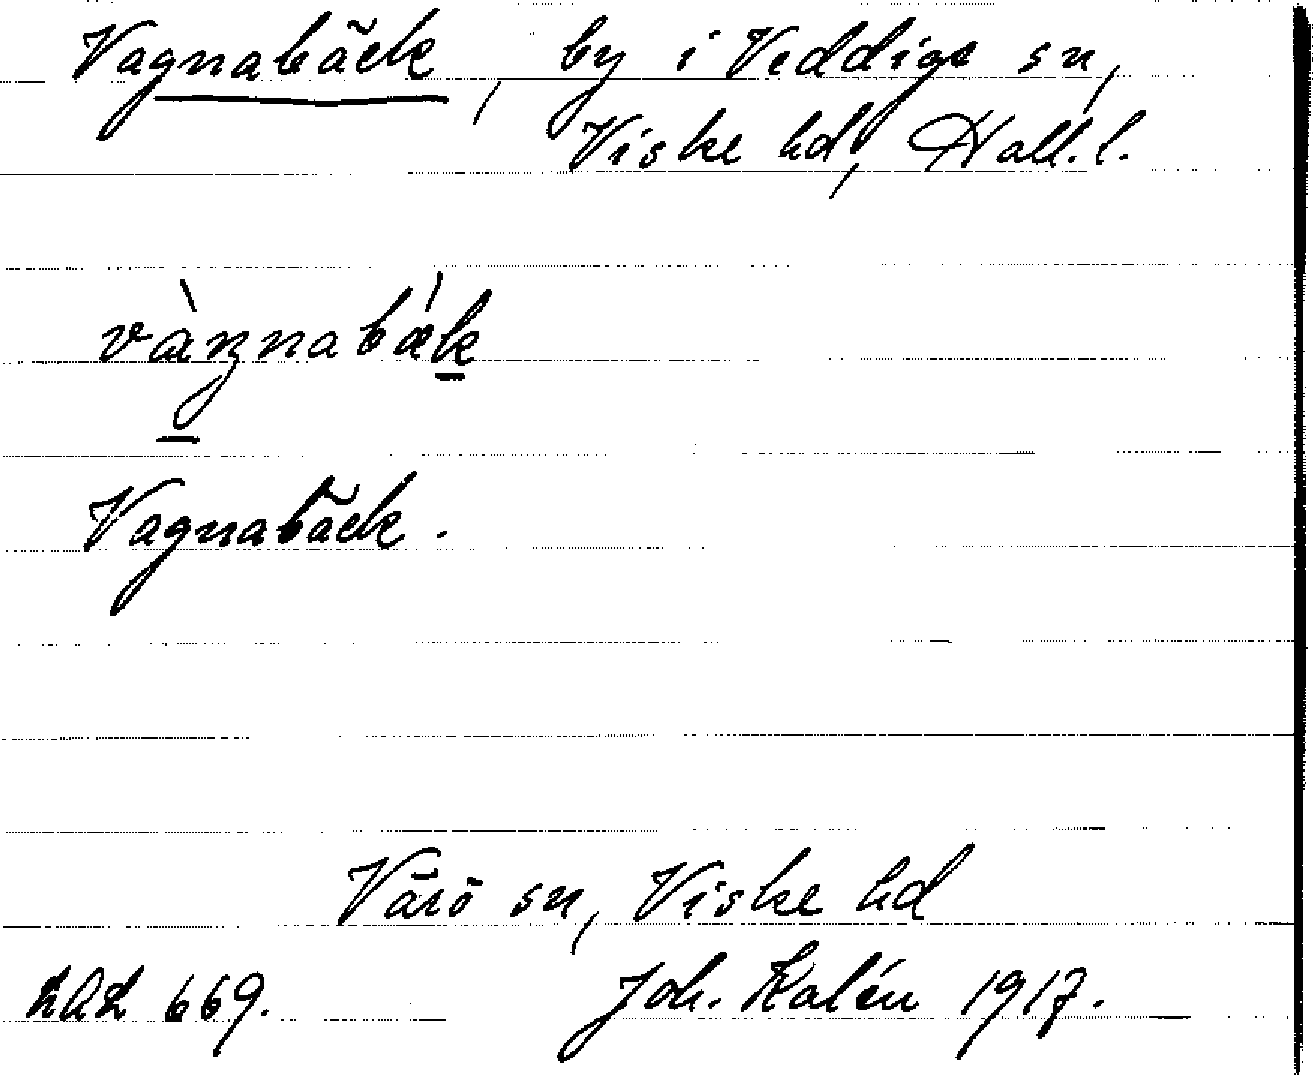 Vagnabäck, by i Veddige sn,
Viske hd, Hall. l.
vàŋnabǽk
Vagnabäck.
Värö sn, Viske hd
LAL 669. Joh. Kalén 1917.